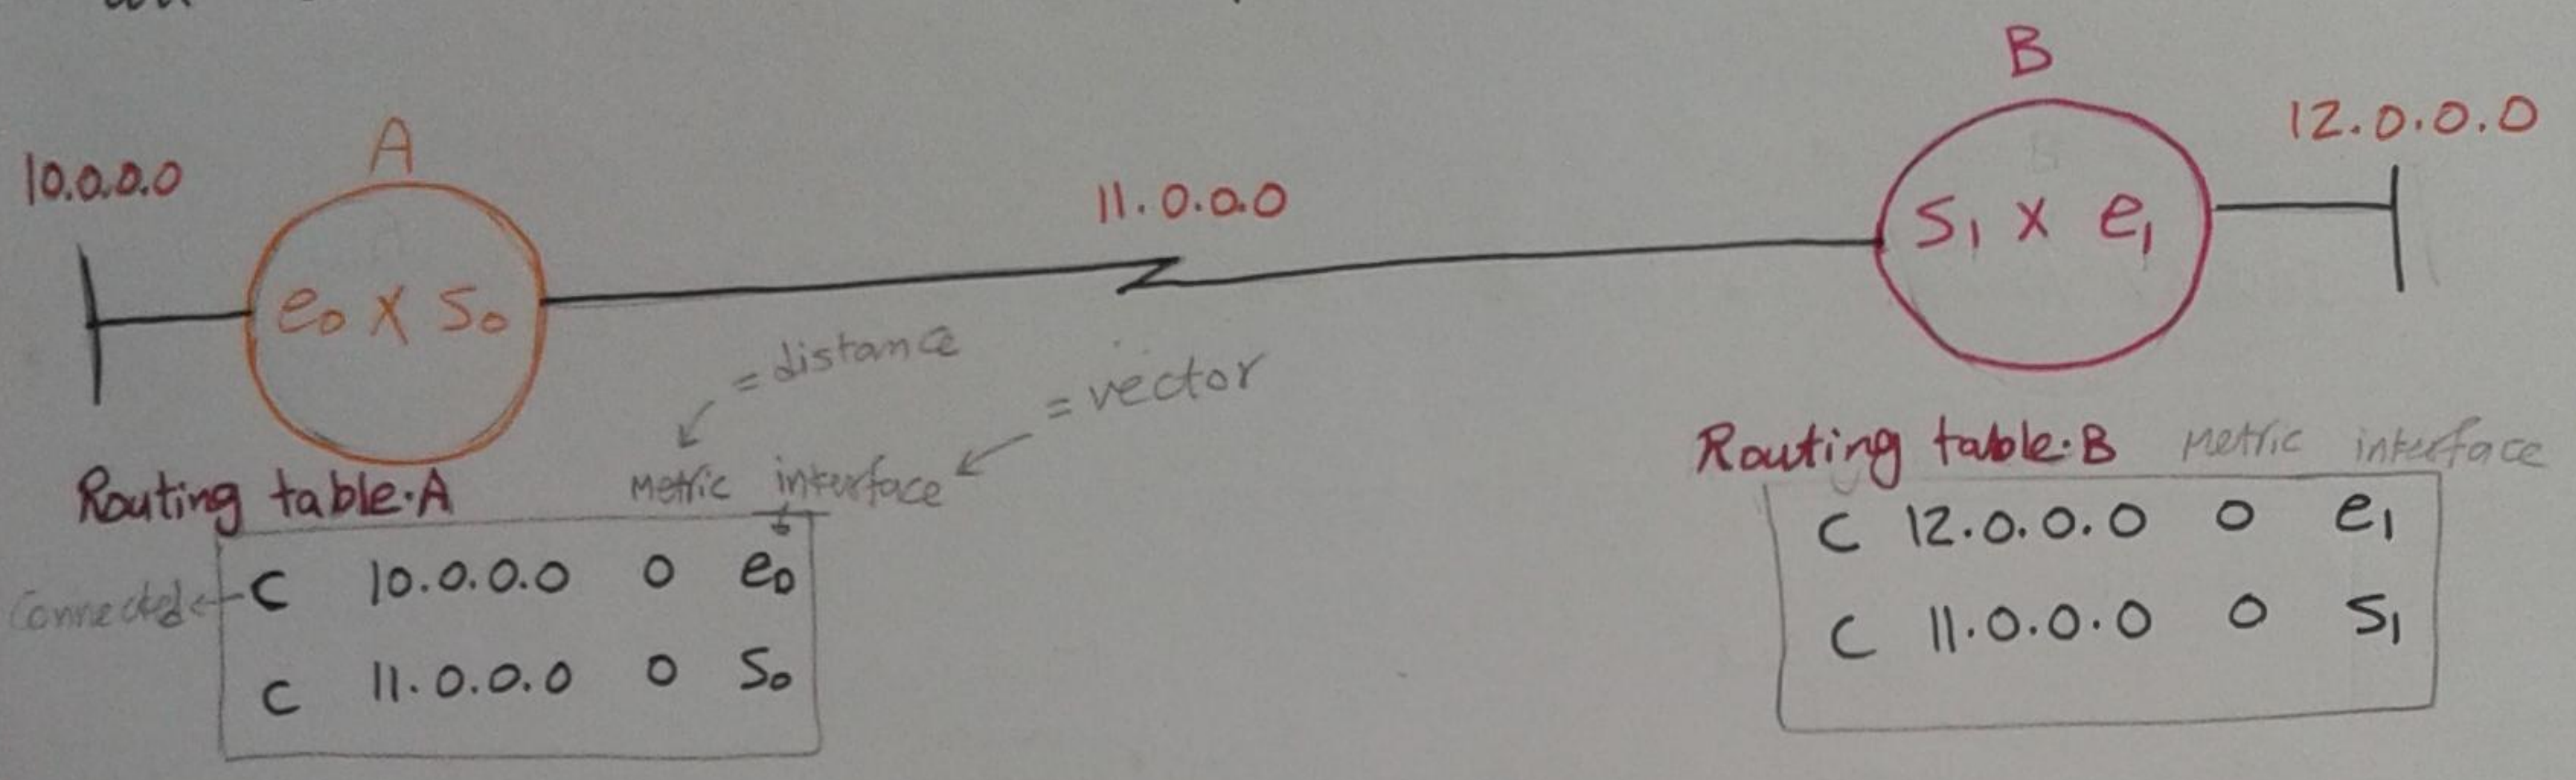 B
12.0.0.0
A
10.0.0.0
11.0.0.0
S1 X e1
e0 X S0
= distance
= vector
Routing table.A metric interface
C 10.0.0.0 0 e0
Connected
C 11.0.0.0 0 S0
Routing table.B metric interface
C 12.0.0.0 0 e1
C 11.0.0.0 0 S1